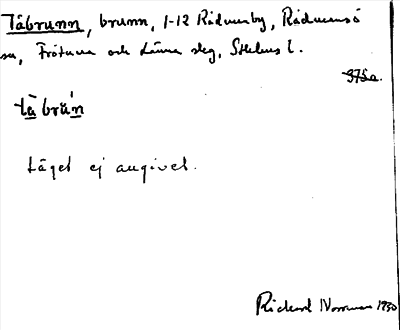 Tåbrunn, brunn, 1-12 Rådmanby, Rådmansö
sn, Frötuna och Länna slg, Sthlms l.
375a.
tåbrun
Läget ej angivet.
Rickard Norrman 1930